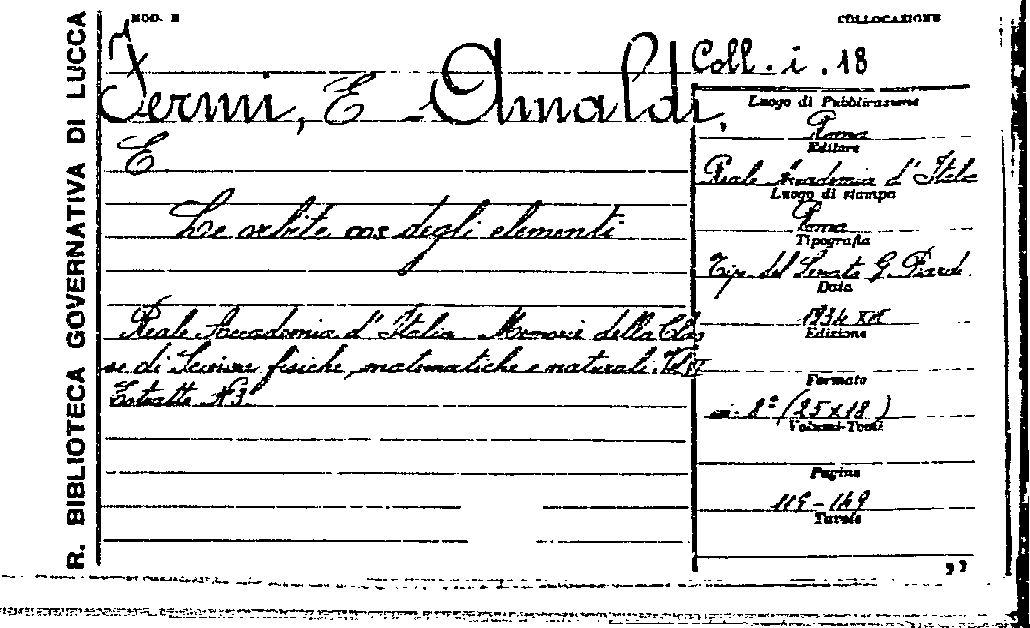 MOD. E
COLLOCAZIONE
R. BIBLIOTECA GOVERNATIVA DI LUCCA
Fermi, E - Amaldi,
E.
Le orbite oos degli elementi
Reale Accademia d'Italia Memorie della Clas
se di Scienze fisiche, matematiche e naturali. Vol VI
Estratto N 3.
Coll. i. 18
Luogo di Pubblicazione
Roma
Editore
Reale Accademia d'Italia
Luogo di stampa
Roma
Tipografia
Tip. del Senato G.
Data
1934 XII
Edizione
Formato
in 8º (25x18)
Volumi-Tomi
Pagine
119-149
Tavole